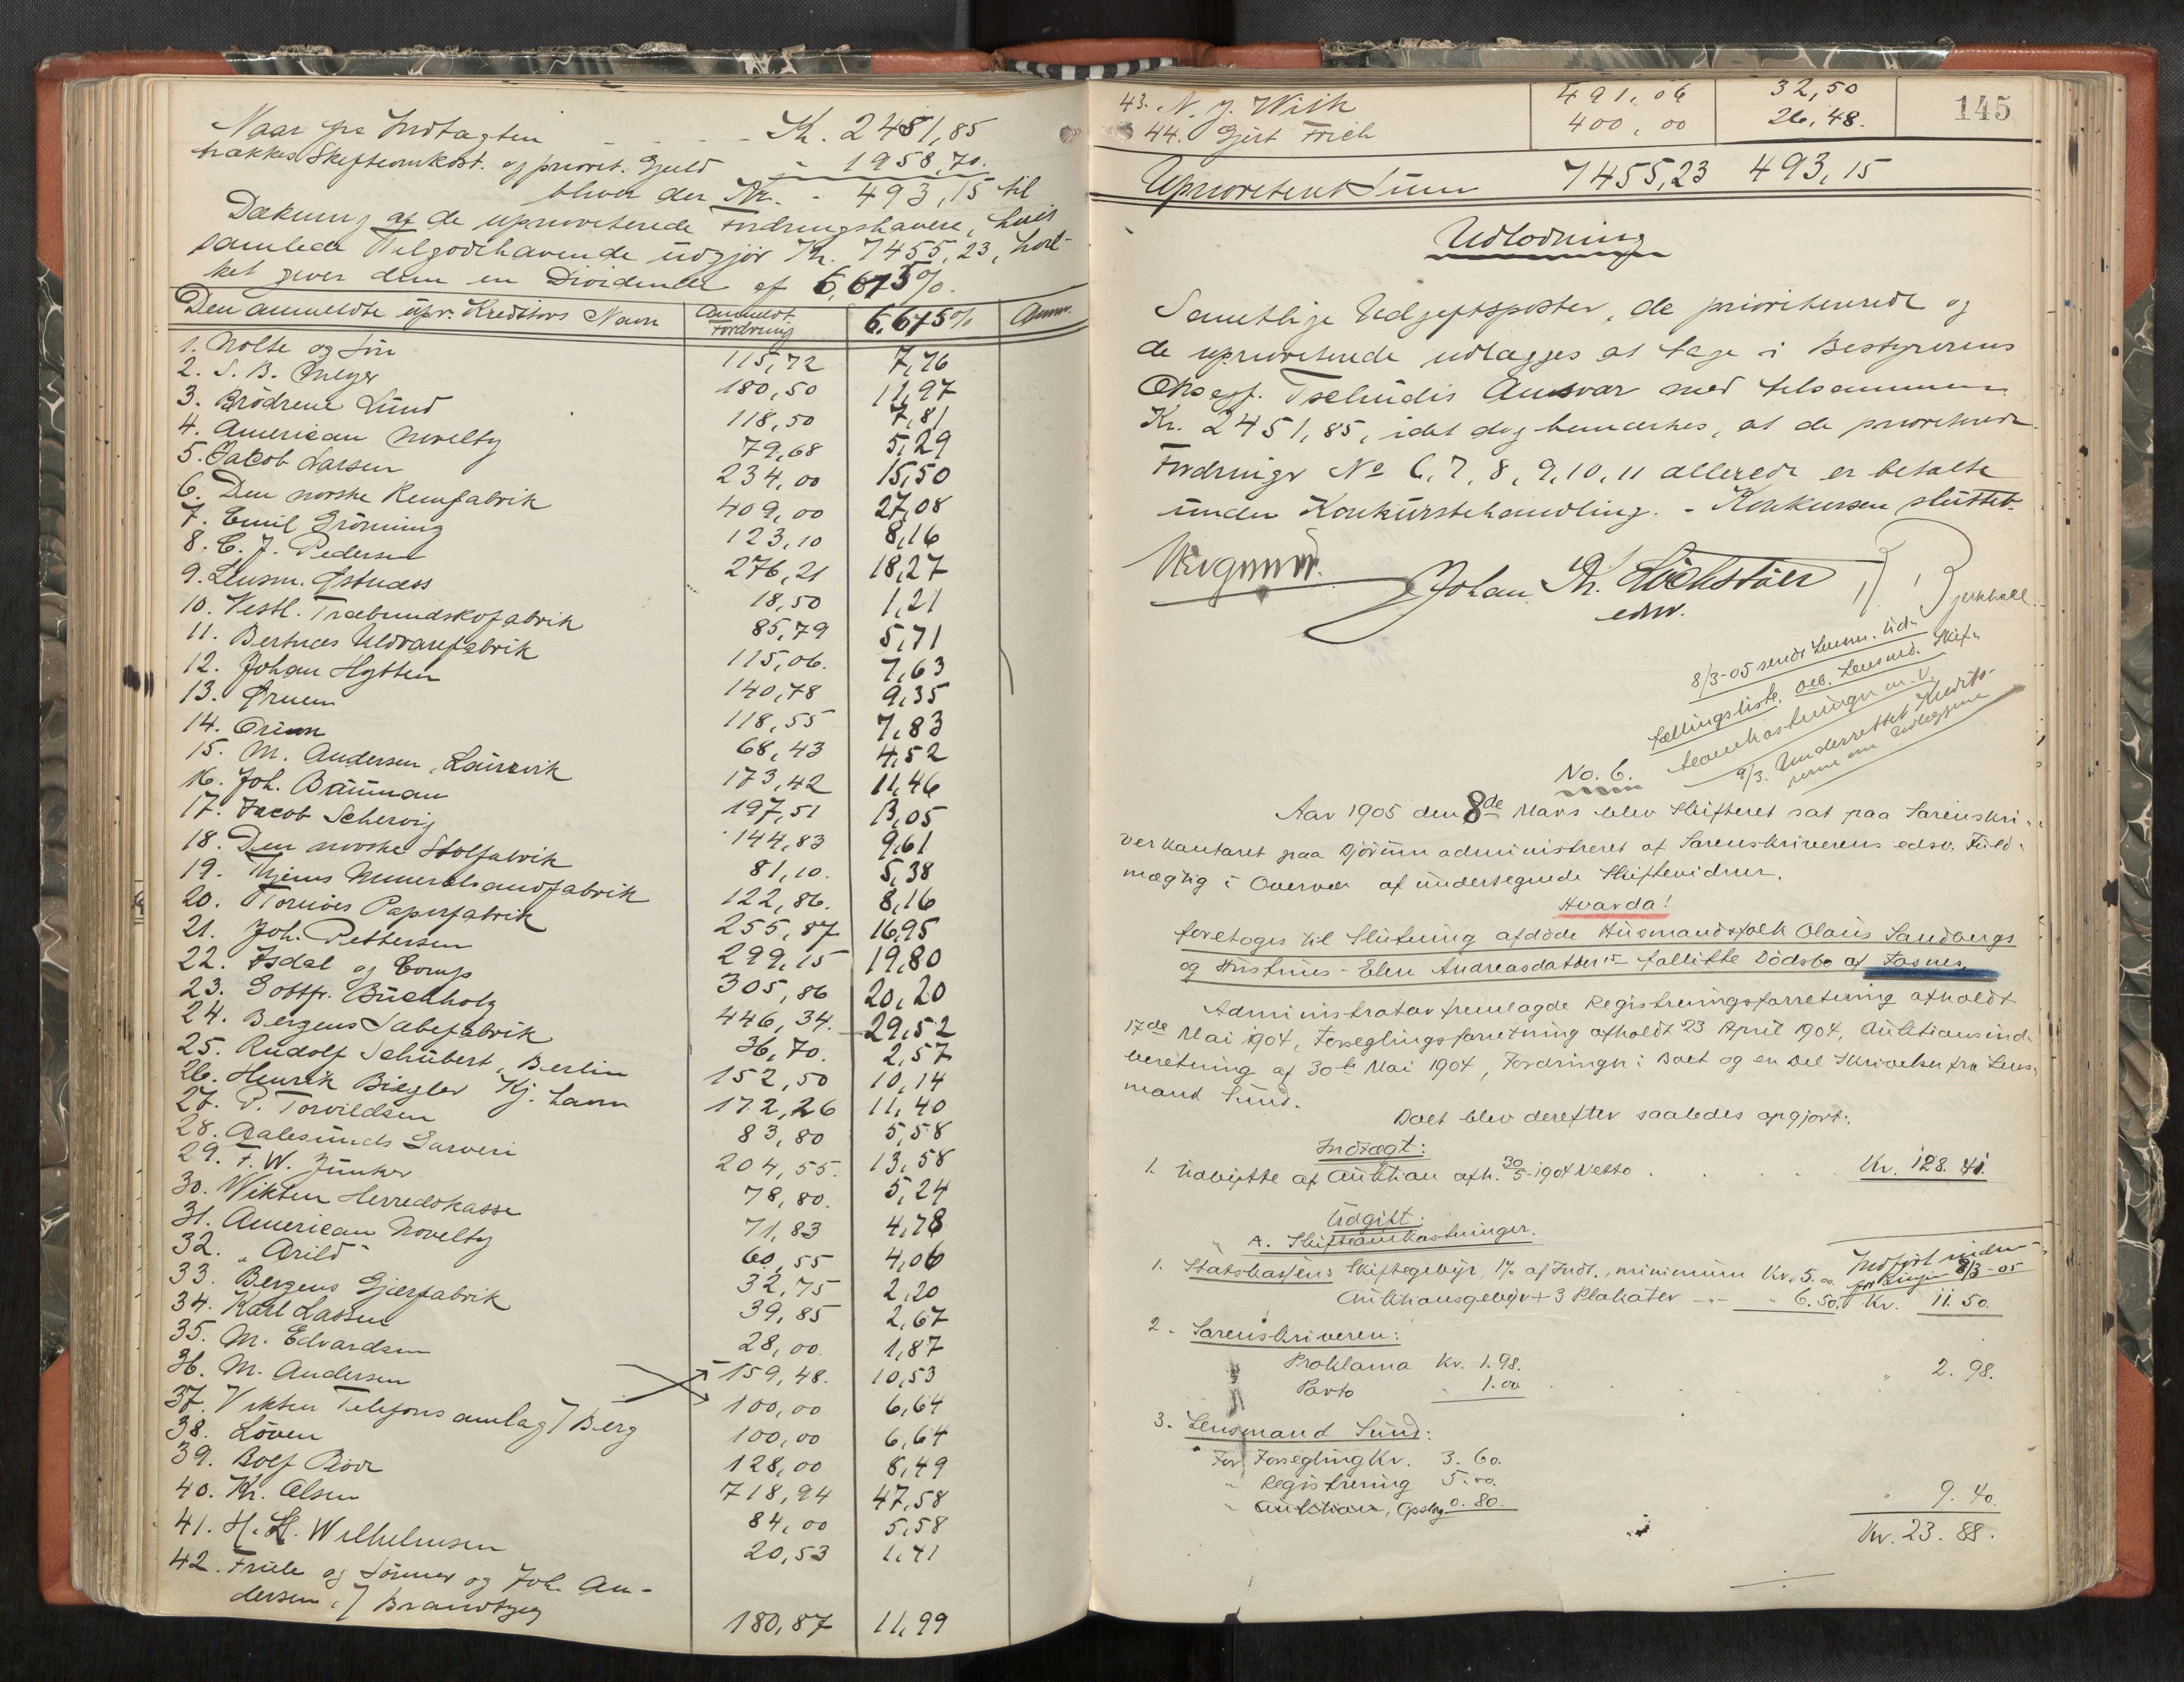 Naar fra Indtægten - - - Kr. 2451,85
trækkes Skifteomkost. og priorit. Gjæld " 1958,70.
bliver der Kr. - 493,15 til
Dækning af de uprioriterede Fordringshavere, hvis
samlede Tilgodehavende udgjør Kr. 7455,23, hvil-
ket giver dem en Dividende af 6,675%.
Den anmeldte upr. Kreditors Navn Anmeldt Fordring 6,675% Anm.
1. Nolte og Søn 115,72 7,76
2. S. B. Meyer 180,50 11,97
3. Brödrene Lund 118,50 7,81
4. American Novelty 79,68 5,29
5. Jacob Larsen 234,00 15,50
6. Den norske Remfabrik 409,00 27,08
7. Emil Grönning 123,10 8,16
8. C. J. Pedersen 276,21 18,27
9. Lensm. Østnæss 18,50 1,21
10. Vestl. Træbundskofabrik 85,79 5,71
11. Bertnæs Uldvarefabrik 115,06. 7,63
12. Johan Hytten 140,78 9,35
13. 118,55 7,83
14. 68,43 4,52
15. M. Andersen, Laurvik 173,42 11,46
16. Joh. Bauman 197,51 13,05
17. Jacob Schervig 144,83 9,61
18. Den norske Stolfabrik 81,10. 5,38
19. Mineralvandfabrik 122,86. 8,16
20. Papirfabrik 255,87 16,95
21. Joh. Pettersen 299,15 19,80
22. Isdal og Comp 305,86 20,20
23. Gottfr. Buchholz 446,34. 29,52
24. Bergens Sæbefabrik 36,70. 2,57
25. Rudolf Schubert, Berlin 152,50 10,14
26. Henrik Biegler Kj. havn 172,26 11,40
27. P. Torvildsen 83,80 5,58
28. Aalesunds Garveri 204,55. 13,58
29. F. W. Junker 78,80. 5,24
30. Vikten Herredskasse 71,83 4,78
31. American Novelty 60,55 4,06
32. "Arild" 32,75 2,20
33. Bergens Gjærfabrik 39,85 2,67
34. Karl Lassen 28,00. 1,87
35. M. Edvardsen 159,48. 10,53
36. M. Andersen 100,00 6,64
37. Vikten Telefonsamlag / Berg 100,00 6,64
38. Löven 128,00 8,49
39. Rolf 718,94 47,58
40. Kr. Olsen 84,00 5,58
41. H. H. Wilhelmsen 20,53 1,41
42. Friele og Sönner og Joh. An-
dersen, / Brandtzæg 180,87 11,99
145
43. N. J. Wiik 491,06 32,50
44. Gjert Frich 400,00 26,48.
Uprioriteret Sum 7455,23 493,15
Udlodning
Samtlige Udgiftsposter, de prioriterede og
de uprioriterede udlægges at tage i Bestyrerens
Tschudis Ansvar med tilsammen
Kr. 2451,85, idet dog bemærkes, at de prioriterede
Fordringer No 6, 7, 8, 9, 10, 11 allerede er betalte
under Konkursbehandling. - Konkursen sluttet.
Wiegaard. Johan Kr. Löchstöer
edsv.
8/3-05 sendt Lensm. Ud-
fællingsliste. Lensmd. Skif-
teomkostninger m. v.
9/3. Underrettet Kredito-
rerne om Udlæggene
No. 6.
Aar 1905 den 8de Mars blev Skifteret sat paa Sorenskri-
verkontoret paa Djöruun administreret af Sorenskriverens edsv. Fuld-
mægtig i Overvær af undertegnede Skiftevidner.
Hvorda!
foretoges til Slutning afdöde Husmandsfolk Olaus Sandbergs
og Hustrus - Elen Andreasdatters - fallitte Dödsbo af Fosnes.
Administrator fremlagde Registreringsforretning afholdt
17de Mai 1904, Forseglingsforretning afholdt 23 April 1904, Auktionsind-
beretning af 30te Mai 1904, Fordringer i Boet og en Del Skrivelser fra Lens-
mand Sund.
Boet blev derefter saaledes opgjort:
Indtægt:
1. Udbytte af Auktion afh. 30/5-1904 Netto . . . Kr. 128.41.
Udgift:
A. Skifteomkostninger.
Indfört under
8/3-05
1. Statskassens Skiftegebyr 1% af Indt., minimum Kr. 5.00
Auktionsgebyr + 3 Plakater - " - " 6.50. Kr. 11.50.
2. Sorenskriveren:
Proklama Kr. 1.98.
Porto " 1.00 . . . " 2.98.
3. Lensmand Sund:
For Forsegling Kr. 3.60.
" Registrering 5.00.
" Auktion, Opslag 0.80. " 9.40.
Kr. 23.88.